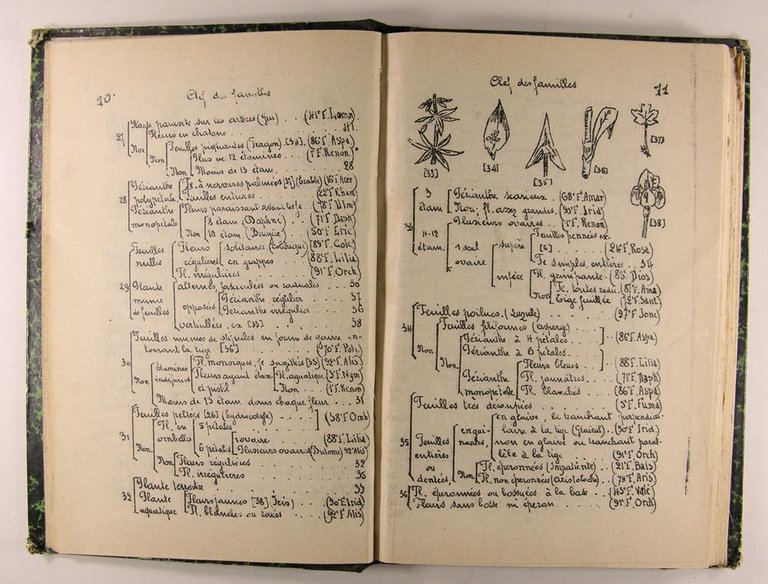 10.
Clef des familles
27 Plante parasite sur les arbres (Gui) . . (41e F. Loran
Non Fleurs en chatons . . . 41
Non Feuilles piquantes (Fragon) [32] . (86e F. Aspa
Non Plus de 12 étamines . . . (1e F. Renon)
Moins de 13 étam. . . . 28
28 Périanthe polypétale Fe. à nervures palmées [31] (Erable) (16e F. Acer
Feuilles entières . . . (22e F. Rham
Périanthe monopétale Fleurs paraissant avant les fe. (78e F. Ulm
Non 8 étam (Daphné) . . (71e F. Daph
10 étam (Bruyère) . . (50e F. Eric
29 Feuilles nulles Fleurs régulières solitaires (Colchique) (89e F. Colc
en grappes (88e F. Lilia
Fl. irrégulières . . . (91e F. Orch
Plante munie de feuilles alternes, fasciculées ou radicales . 30
opposées Périanthe régulier . . . 37
Périanthe irrégulier . . . 36
verticillées, ex [33] . . . 38
30 Feuilles munies de stipules en forme de gaine en-
tourant la tige [36] . . . (70e F. Poly
Non étamines indépend et pistil Fl. monoïques, fe. sagittées [35] (92e F. Alis
Fleurs ayant étam Pl. aquatique (3e F. Nym
Non . . . (1e F. Renon
Moins de 13 étam. dans chaque fleur . . . 31
31 Feuilles peltées [26] (hydrocotyle) . . . (38e F. Omb
Non Fl. en ombelles 5 pétales
6 pétales 1 ovaire . . . (88e F. Lilia
Plusieurs ovaires (Butome) 92e Alis
Non Fleurs régulières . . . 32
Fl. irrégulières . . . 35
32 Plante terrestre . . . 33
Plante aquatique Fleurs jaunes [38] (Iris) . . . (90e F. Irid
Fl. blanches ou rosées . . . (92e F. Alis
Clef des familles
11
[33]
[34]
[35]
[36]
[37]
[38]
33 3 étam Périanthe scarieux . . (68e F. Amar
Non, fl. assez grandes. (90e F. Irid
4-12 étam. Plusieurs ovaires . . (1e F. Renon
1 seul ovaire supère Feuilles pennées ex.
[6] . . . (24e F. Rose
Fe. simples, entières . . 34
infère Pl. grimpante . . (85e Dios
Non Fe. toutes radic. (87e F. Ama
Tige feuillée (72e F. Sant
34 Feuilles poilues. (Luzule) . . . (97e F. Jonc
Non Feuilles filiformes (asperge) . .
Non Périanthe à 4 pétales . . . (86e F. Aspa
Périanthe à 6 pétales . .
Fleurs bleues . . (88e F. Lilia
Périanthe monopétale Fl. jaunâtres . . (71e F. Daph
Fl. blanches . . (86e F. Aspa
35 Feuilles très découpées . . . (5e F. Fuma
Feuilles entières ou dentées, engaî-
nantes, en glaive, le tranchant perpendicu-
laire à la tige (Glaïeul) . (90e F. Irid
non en glaive ou tranchant paral-
lèle à la tige . . . (91e F. Orch
Non Fl. éperonnées (Impatiente) . (21e F. Bals
Fl. non éperonnées (aristoloche) . (74e F. Aris
36 Fl. éperonnées ou bossuées à la base . . (45e F. Vale
Fleurs sans bosse ni éperon . . . (91e F. Orch